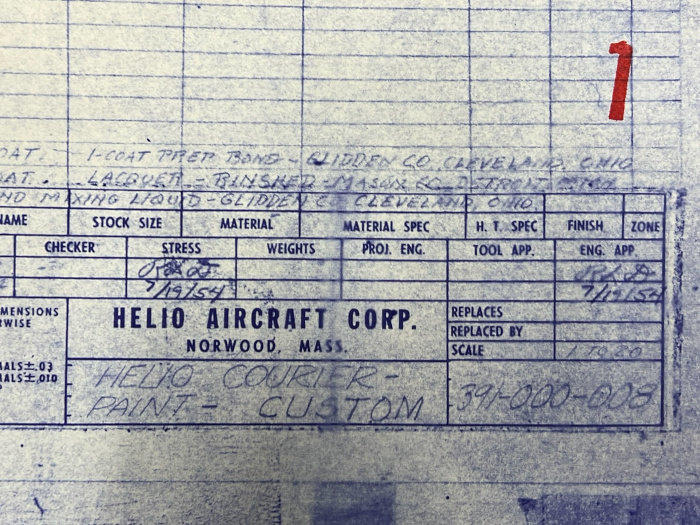 1
OAT. 1-COAT PREP BOND - GLIDDEN CO. CLEVELAND, OHIO
OAT. LACQUER - RINSHED-MASON CO. DETROIT
ND MIXING LIQUID - GLIDDEN CO. CLEVELAND, OHIO.
NAME STOCK SIZE MATERIAL MATERIAL SPEC H. T. SPEC FINISH ZONE
CHECKER STRESS WEIGHTS PROJ. ENG. TOOL APP. ENG. APP.
7/19/54 7/19/54
MENSIONS
RWISE
HELIO AIRCRAFT CORP.
NORWOOD, MASS.
REPLACES
REPLACED BY
SCALE 1 TO 20
MALS ±.03
MALS ±.010
HELIO COURIER -
PAINT - CUSTOM
391-000-008